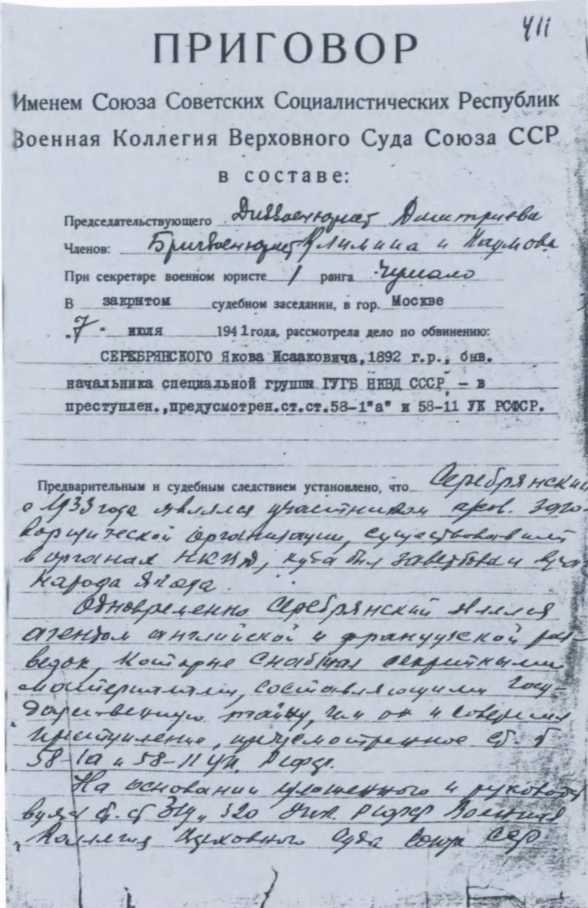 411
ПРИГОВОР
Именем Союза Советских Социалистических Республик
Военная Коллегия Верховного Суда Союза ССР
в составе:
Председательствующего Диввоенюрист Дмитриева
Членов: Бригвоенюрист Климина и Наумова
При секретаре военном юристе 1 ранга Чумало
В закрытом судебном заседании, в гор. Москве
"7" июля 1941 года, рассмотрела дело по обвинению:
СЕРЕБРЯНСКОГО Якова Исааковича, 1892 г.р., быв.
начальника специальной группы ГУГБ НКВД СССР, - в
преступлен., предусмотрен. ст.ст. 58-1"а" и 58-11 УК РСФСР.
Предварительным и судебным следствием установлено, что Серебрянский
с 1933 года являлся участником заго-
ворщической организации, существовавшей
в органах НКВД, куда был завербован врагом
народа Ягода.
Одновременно Серебрянский являлся
агентом английской и французской раз-
ведок, которые снабжал секретными
материалами, составляющими госу-
дарственную тайну, чем он и совершил
преступление, предусмотренное ст. ст
58-1а и 58-11 УК РСФСР.
На основании изложенного и руковод
вуясь ст. ст 319, 320 УПК РСФСР Военная
Коллегия Верховного Суда Союза ССР